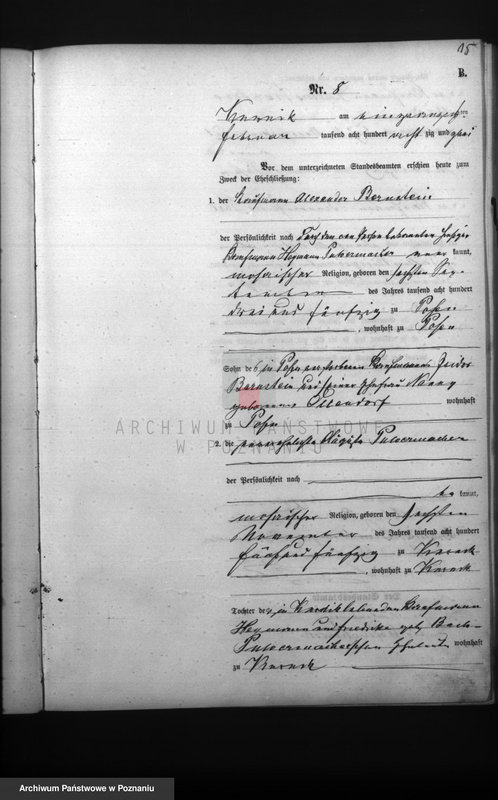 15
B.
Nr. 8
Kurnik am ein zwanzigsten
Februar tausend acht hundert acht zig und zwei
Vor dem unterzeichneten Standesbeamten erschien heute zum
Zweck der Eheschließung:
1. der Kaufmann Alexander Bernstein
der Persönlichkeit nach durch den von Person bekannten
Kaufmann Heymann Pulvermacher kannt,
mosaischer Religion, geboren den sechsten Sep-
tember des Jahres tausend acht hundert
drei und fünfzig zu Posen
, wohnhaft zu Posen
Sohn des in Posen verstorbenen Kaufmanns Isidor
Bernstein und seiner Ehefrau Nanny
geborenen wohnhaft
zu Posen
2. die unverehelichte Pulvermacher
der Persönlichkeit nach
be kannt,
mosaischer Religion, geboren den
November des Jahres tausend acht hundert
fünf und fünfzig zu Kurnik
, wohnhaft zu Kurnik
Tochter der in Kurnik lebenden Kaufmann
Heymann und Friedrike geb.
Pulvermacherschen Eheleute wohnhaft
zu Kurnik
ARCHIWUM PAŃSTWOWE
W POZNANIU
Archiwum Państwowe w Poznaniu